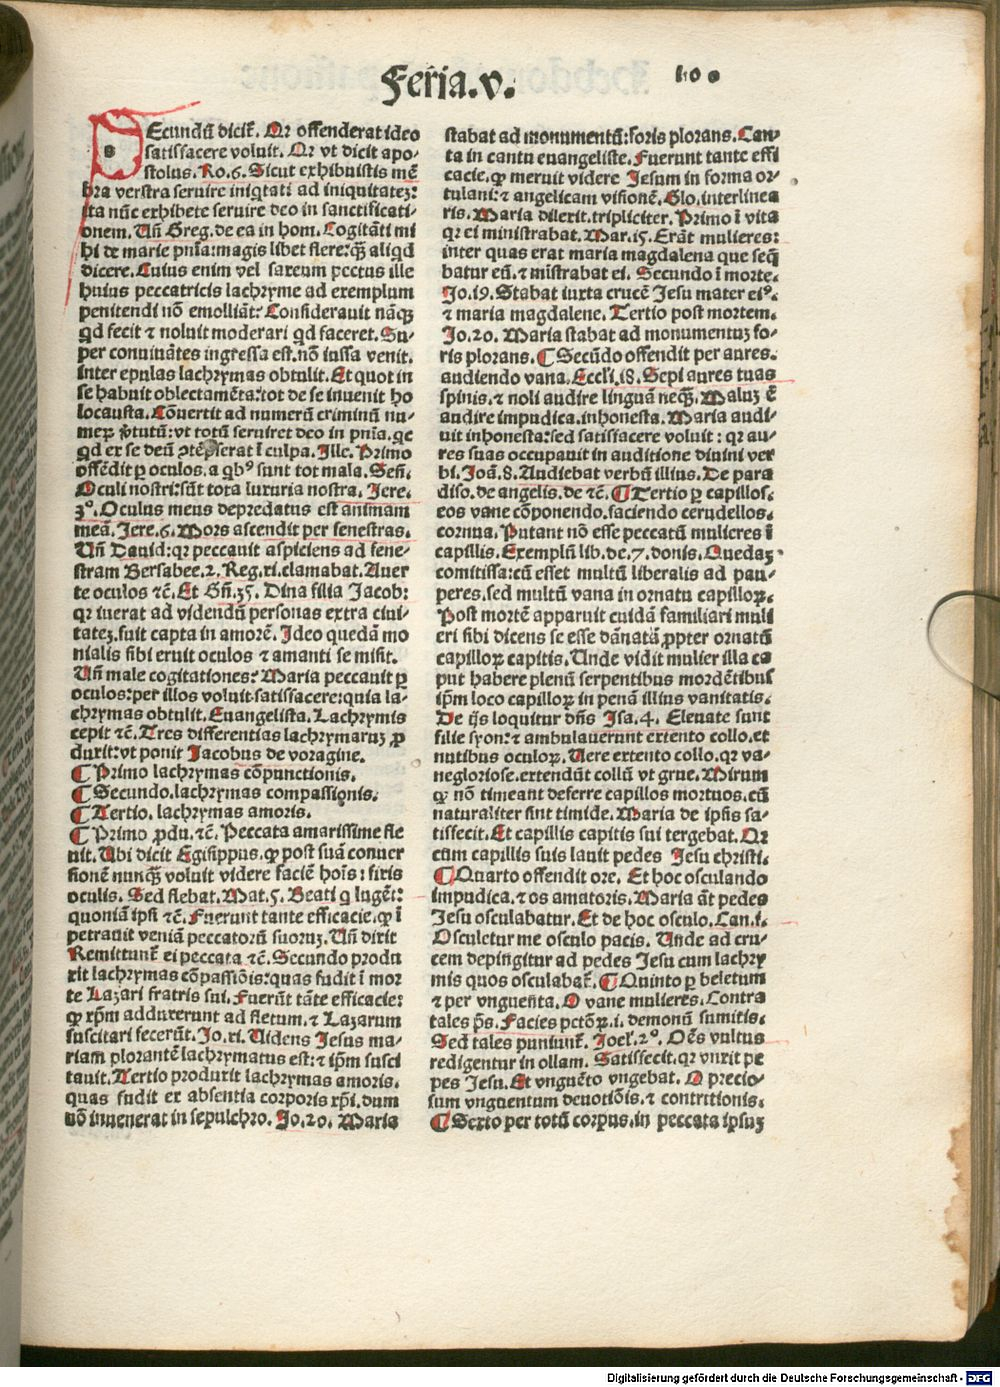 Feria.v.
Ecundũ dicit̃. Qr offenderat ideo
satisfacere voluit. Qr vt dicit apo-
stolus. Ro.6. Sicut exhibuistis mẽ
bra verstra seruire iniqtati ad iniquitatez:
ita nũc exhibete seruire deo in sanctificati-
onem. Uñ Greg. de ea in hom. Cogitãti mi
hi de marie pnĩa: magis libet flere: qꝫ̃ aliqd
dicere. Cuius enim vel saxeum pectus ille
huius peccatricis lachryme ad exemplum
penitendi nõ emolliãt: Considerauit nãqꝫ
qd fecit ⁊ noluit moderari qd faceret. Su-
per conuiuãtes ingressa est. nõ iussa venit.
inter epulas lachrymas obtulit. Et quot in
se habuit oblectamẽta: tot de se inuenit ho
locausta. Cõuertit ad numerũ criminũ nu-
meꝝ v̓tutũ: vt totũ seruiret deo in pnĩa. qc
qd ex se deũ ꝯtẽpserat ĩ culpa. Ille. Primo
offẽdit ꝑ oculos. a qbꝰ sunt tot mala. Señ.
Oculi nostri: sũt tota luxuria nostra. Jere.
3°. Oculus meus depredatus est animam
meã. Jere.6. Mors ascendit per fenestras.
Uñ Dauid: qr peccauit aspiciens ad fene-
stram Bersabee. 2. Reg. xi. clamabat. Auer
te oculos ⁊c̃. Et Gñ.35. Dina filia Jacob:
qr iuerat ad videndũ personas extra ciui-
tatez. fuit capta in amorẽ. Ideo quedã mo
nialis sibi eruit oculos ⁊ amanti se misit.
Uñ male cogitationes: Maria peccauit ꝑ
oculos: per illos voluit satisfacere: quia la-
chrymas obtulit. Euangelista. Lachrymis
cepit ⁊c̃. Tres differentias lachrymaruz ꝓ
duxit: vt ponit Jacobus de voragine.
¶ Primo lachrymas cõpunctionis.
¶ Secundo. lachrymas compassionis.
¶ Tertio. lachrymas amoris.
¶ Primo ꝓdu. ⁊c̃. Peccata amarissime fle
uit. Ubi dicit Egisippus. ꝙ post suã conuer
sionẽ nunqꝫ̃ voluit videre faciẽ hoĩs: fixis
oculis. Sed flebat. Mat.5. Beati q lugẽt:
quoniã ipsi ⁊c̃. Fuerunt tante efficacie. ꝙ ĩ
petrauit veniã peccatorũ suoruz. Uñ dixit
Remittunt̃ ei peccata ⁊c̃. Secundo produ
xit lachrymas cõpassiõis: quas fudit ĩ mor
te Lazari fratris sui. Fuerũt tãte efficacie:
ꝙ xp̃m adduxerunt ad fletum. ⁊ Lazarum
suscitari fecerũt. Jo. xi. Uidens Jesus ma-
riam plorantẽ lachrymatus est: ⁊ ip̃m susci
tauit. Tertio produxit lachrymas amoris.
quas fudit ex absentia corporis xp̃i. dum
nõ inuenerat in sepulchro. Jo.20. Maria
stabat ad monumentũ: foris plorans. Can-
ta in cantu euangeliste. Fuerunt tante effi
cacie. ꝙ meruit videre Jesum in forma or-
tulani: ⁊ angelicam visionẽ. Glo. interlinea
ris. Maria dilexit. tripliciter. Primo ĩ vita
qr ei ministrabat. Mar.15. Erãt mulieres:
inter quas erat maria magdalena que seq̃
batur eũ. ⁊ mĩstrabat ei. Secundo ĩ morte.
Jo.19. Stabat iuxta crucẽ Jesu mater eiꝰ.
⁊ maria magdalene. Tertio post mortem.
Jo.20. Maria stabat ad monumentuz fo-
ris plorans. ¶ Secũdo offendit per aures.
audiendo vana. Eccli.18. Sepi aures tuas
spinis. ⁊ noli audire linguã neqꝫ̃. Maluz ẽ
audire impudica. inhonesta. Maria audi-
uit inhonesta: sed satisfacere voluit: qr au-
res suas occupauit in auditione diuini ver
bi. Joã.8. Audiebat verbũ illius. De para
diso. de angelis. de ⁊c̃. ¶ Tertio ꝑ capillos.
eos vane cõponendo. faciendo cerudellos.
cornua. Putant nõ esse peccatũ mulieres ĩ
capillis. Exemplũ lib. de. 7. donis. Quedaz
comitissa: cũ esset multũ liberalis ad pau-
peres. sed multũ vana in ornatu capilloꝝ.
Post mortẽ apparuit cuidã familiari muli
eri sibi dicens se esse dãnatã ꝓpter ornatũ
capilloꝝ capitis. Unde vidit mulier illa ca
put habere plenũ serpentibus mordẽtibus
ip̃m loco capilloꝝ in penã illius vanitatis.
De ijs loquitur dñs Isa.4. Eleuate sunt
filie syon: ⁊ ambulauerunt extento collo. et
nutibus oculoꝝ. Uere extento collo. qr va-
negloriose. extendũt collũ vt grue. Mirum
ꝙ nõ timeant deferre capillos mortuos. cũ
naturaliter sint timide. Maria de ipsis sa-
tisfecit. Et capillis capitis sui tergebat. Qr
cum capillis suis lauit pedes Jesu christi.
¶ Quarto offendit ore. Et hoc osculando
impudica. ⁊ os amatoris. Maria aũt pedes
Jesu osculabatur. Et de hoc osculo. Can.i.
Osculetur me osculo pacis. Unde ad cru-
cem depingitur ad pedes Jesu cum lachry
mis quos osculabat̃. ¶ Quinto ꝑ beletum
⁊ per vnguẽta. O vane mulieres. Contra
tales p̃s. Facies pctõꝝ. i. demonũ sumitis.
Sed tales puniunt̃. Joel.2°. Oẽs vultus
redigentur in ollam. Satisfecit. qr vnxit pe
pes Jesu. Et vnguẽto vngebat. O precio-
sum vnguentum deuotiõis. ⁊ contritionis.
¶ Sexto per totũ corpus. in peccata ipsuz
Digitalisierung gefördert durch die Deutsche Forschungsgemeinschaft - DFG